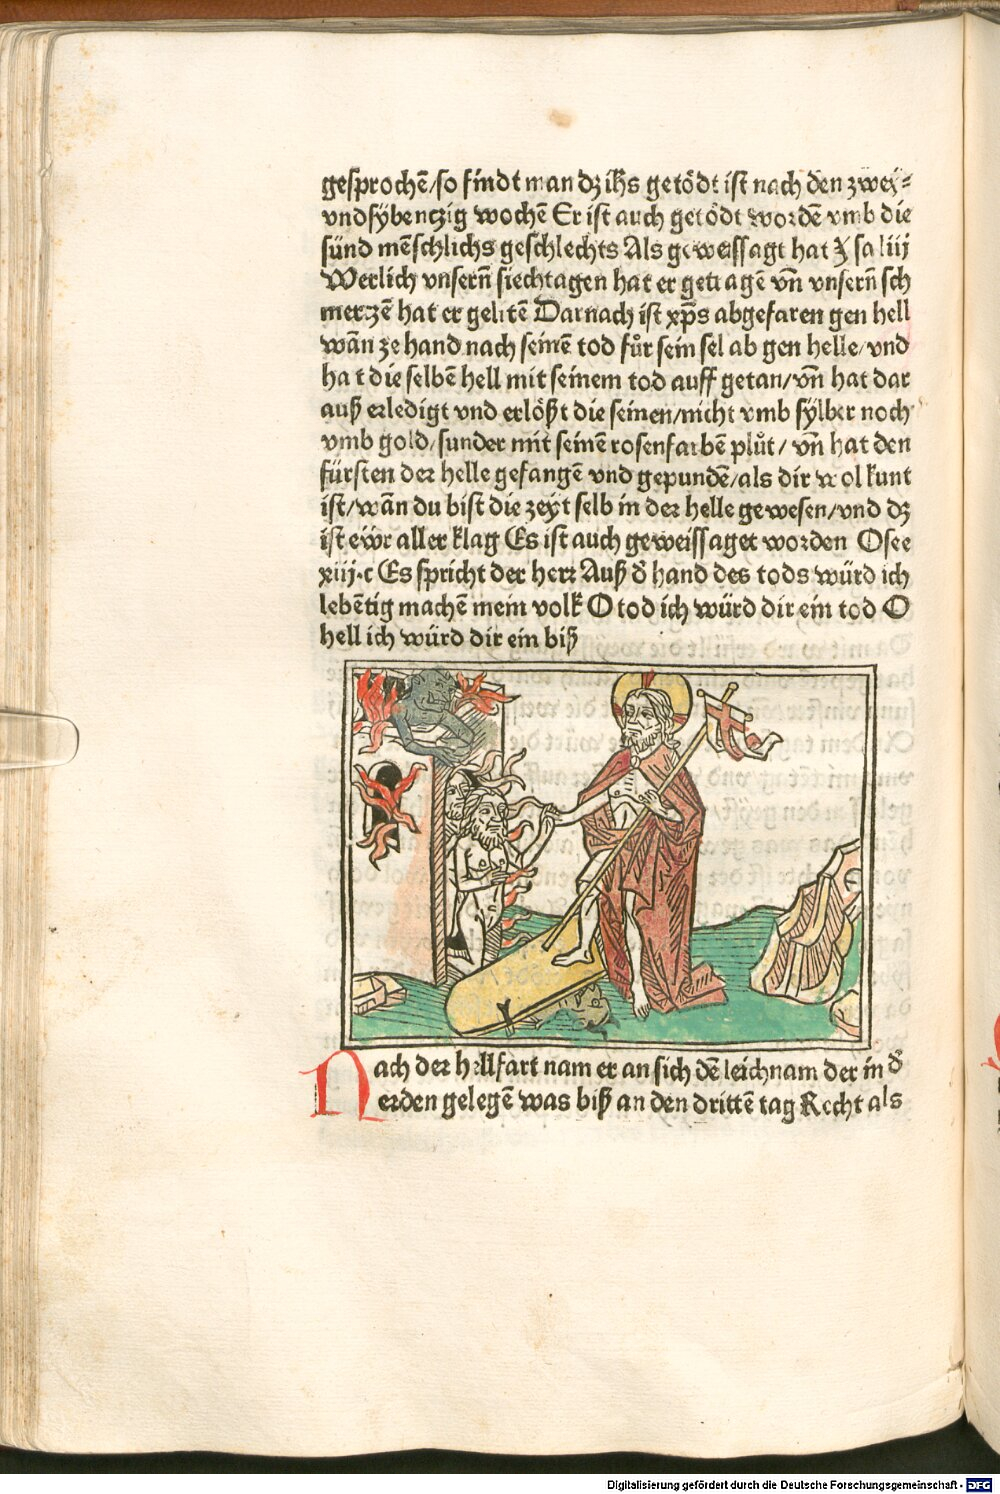 gesprochē/so findt man dʒ ihs getödt ist nach den zwey⸗
vndsybenczig wochē Er ist auch getödt wordē vmb die
sünd mēschlichs geschlechts Als geweissagt hat Ysa liij
Werlich vnsern̄ siechtagen hat er getragē vn̄ vnsern̄ sch
merzē hat er gelitē Darnach ist xp̄s abgefaren gen hell
wān ze hand nach seinē tod fůr sein sel ab gen helle/vnd
hat die selbē hell mit seinem tod auff getan/vn̄ hat dar
auß erledigt vnd erlößt die seinen/nicht vmb sylber noch
vmb gold/sunder mit seinē rosenfarbē plůt/vn̄ hat den
fürsten der helle gefangē vnd gepundē/als dir wol kunt
ist/wān du bist die zeyt selb in der helle gewesen/vnd dʒ
ist ewr aller klag Es ist auch geweissaget worden Osee
xiij.c Es spricht der herr Auß d̄ hand des tods würd ich
lebētig machē mein volk O tod ich würd dir ein tod O
hell ich würd dir ein biß
Nach der hellfart nam er an sich dē leichnam der in d̄
erden gelegē was biß an den drittē tag Recht als
Digitalisierung gefördert durch die Deutsche Forschungsgemeinschaft - DFG